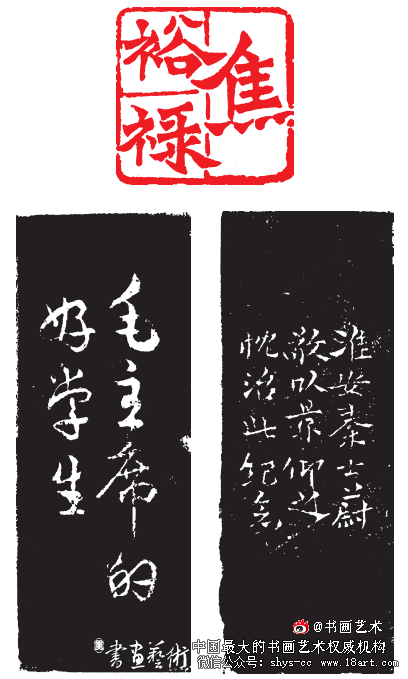 焦
裕禄
毛主席的
好学生
淮安秦士蔚
敬以景仰之
忱治此纪念
@书画艺术
書画藝術
中国最大的书画艺术权威机构
微信公众号：shys-cc www.18art.com